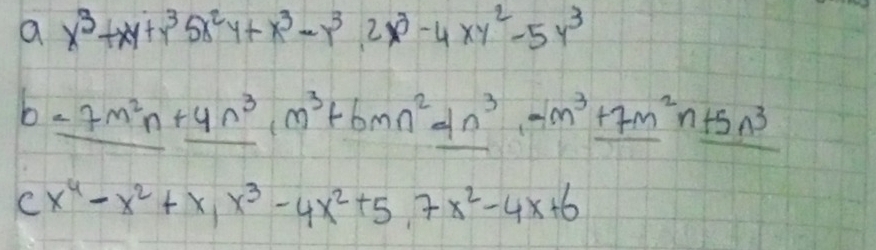 a x³+xy+y³ 5x²y+x³-y³, 2x³-4xy²-5y³
b -7m²n+4n³, m³+6mn²-n³, -m³+7m²n+5n³
c x⁴-x²+x, x³-4x²+5, 7x²-4x+6